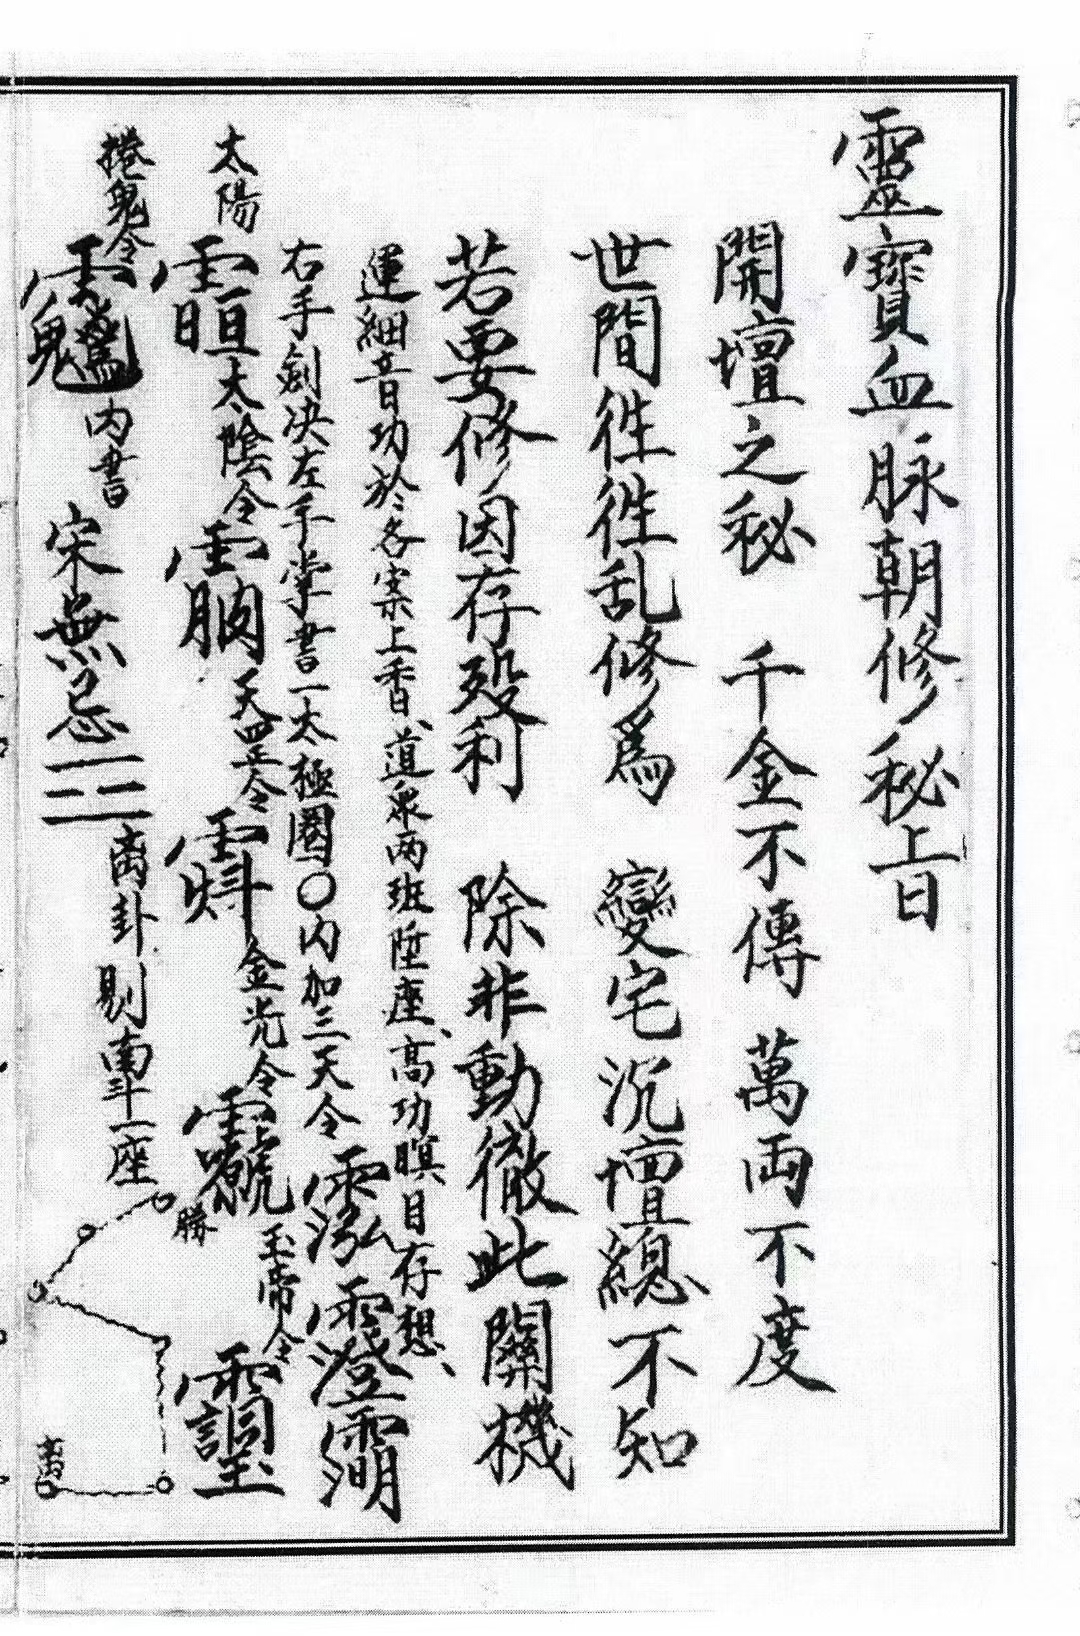 靈寶血脉朝修秘上旨
開壇之秘 千金不傳 萬両不度
世間徃徃乱修爲 變宅沉壇總不知
若要修因存殁利 除非動徹此關機
運細音功於各案上香、道衆两班陞座、高功瞑目存想、
右手劍決左手掌書一太極圈〇内加三天令
太陽
太陰令
天罡令
金光令
玉帝令
捲鬼令
内書
宋無忌
三
离卦剔南斗一座
勝